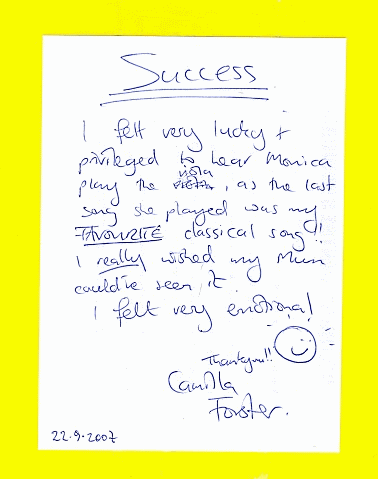 Success
I felt very lucky +
privileged to hear Monica
viola
play the , as the last
song she played was my
FAVOURITE classical song!!
I really wished my Mum
could've seen it.
I felt very emotional
Thankyou!!
Camilla
Forster.
22.9.2007